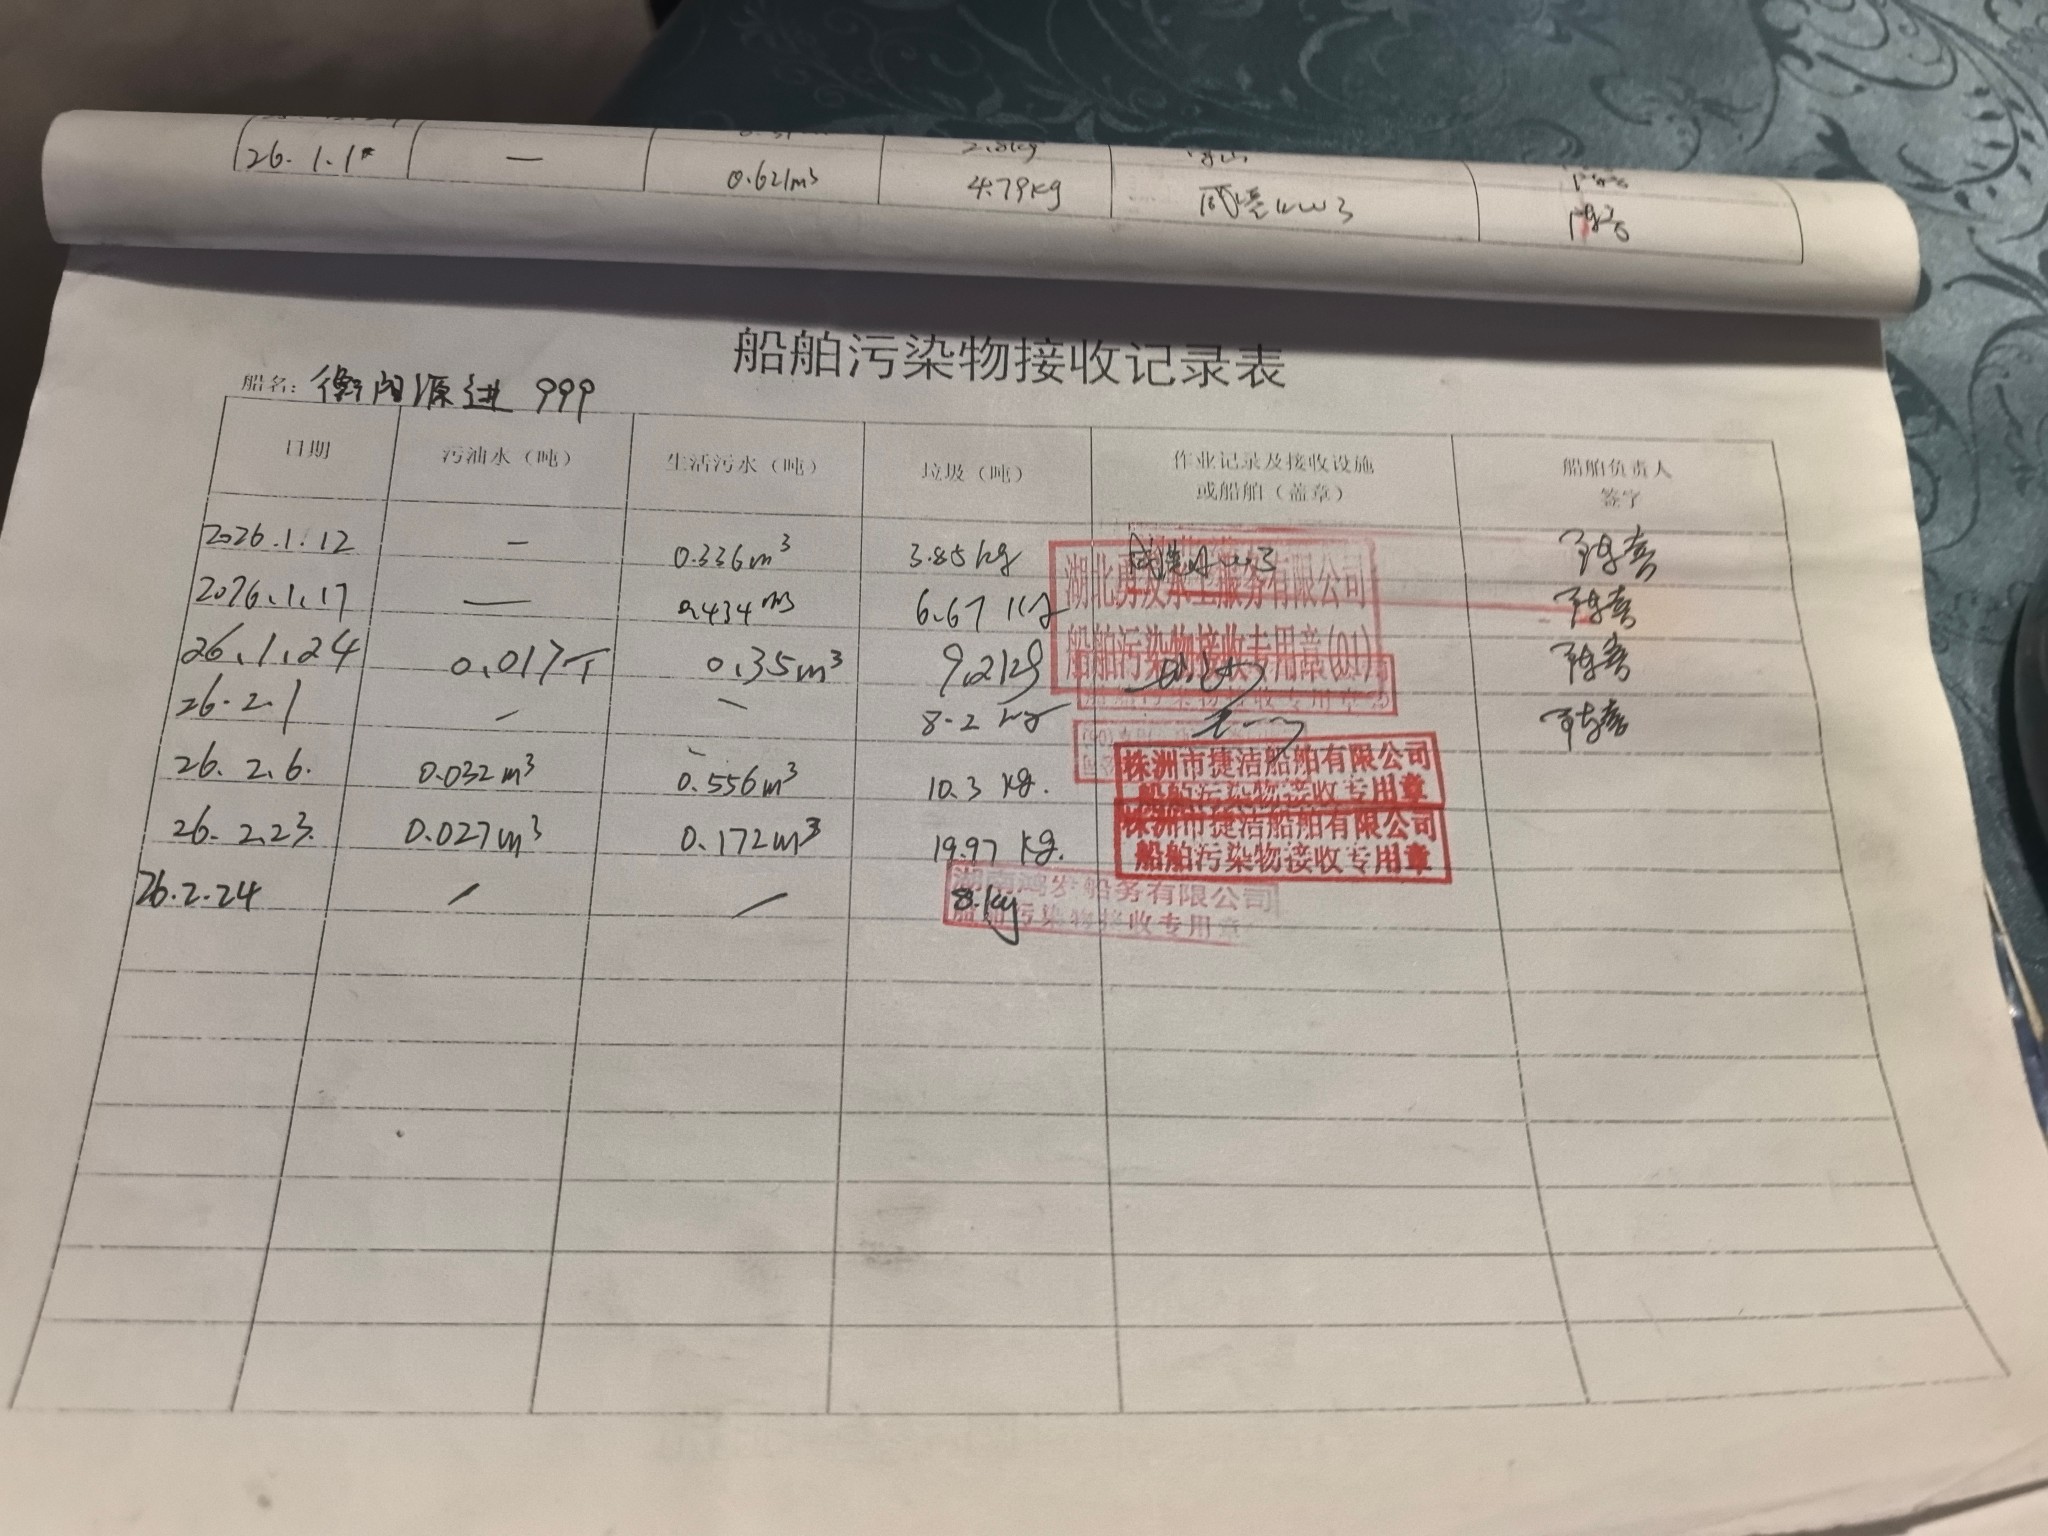 26.1.1 — 0.621m³ 4.79kg
船舶污染物接收记录表
船名: 衡阳源进 999
日期 污油水（吨） 生活污水（吨） 垃圾（吨） 作业记录及接收设施 船舶负责人
或船舶（盖章） 签字
2026.1.12 — 0.336m³ 3.85kg
2026.1.17 — 0.434m³ 6.67Kg
26.1.24 0.017T 0.35m³ 9.2kg
26.2.1 — — 8.2kg
26.2.6. 0.032m³ 0.556m³ 10.3kg.
26.2.23. 0.027m³ 0.172m³ 19.97kg.
26.2.24 / / 8.kg
船舶污染物接收专用章(01)
株洲市捷洁船舶有限公司
船舶污染物接收专用章
株洲市捷洁船舶有限公司
船舶污染物接收专用章
湖南鸿发船务有限公司
船舶污染物接收专用章